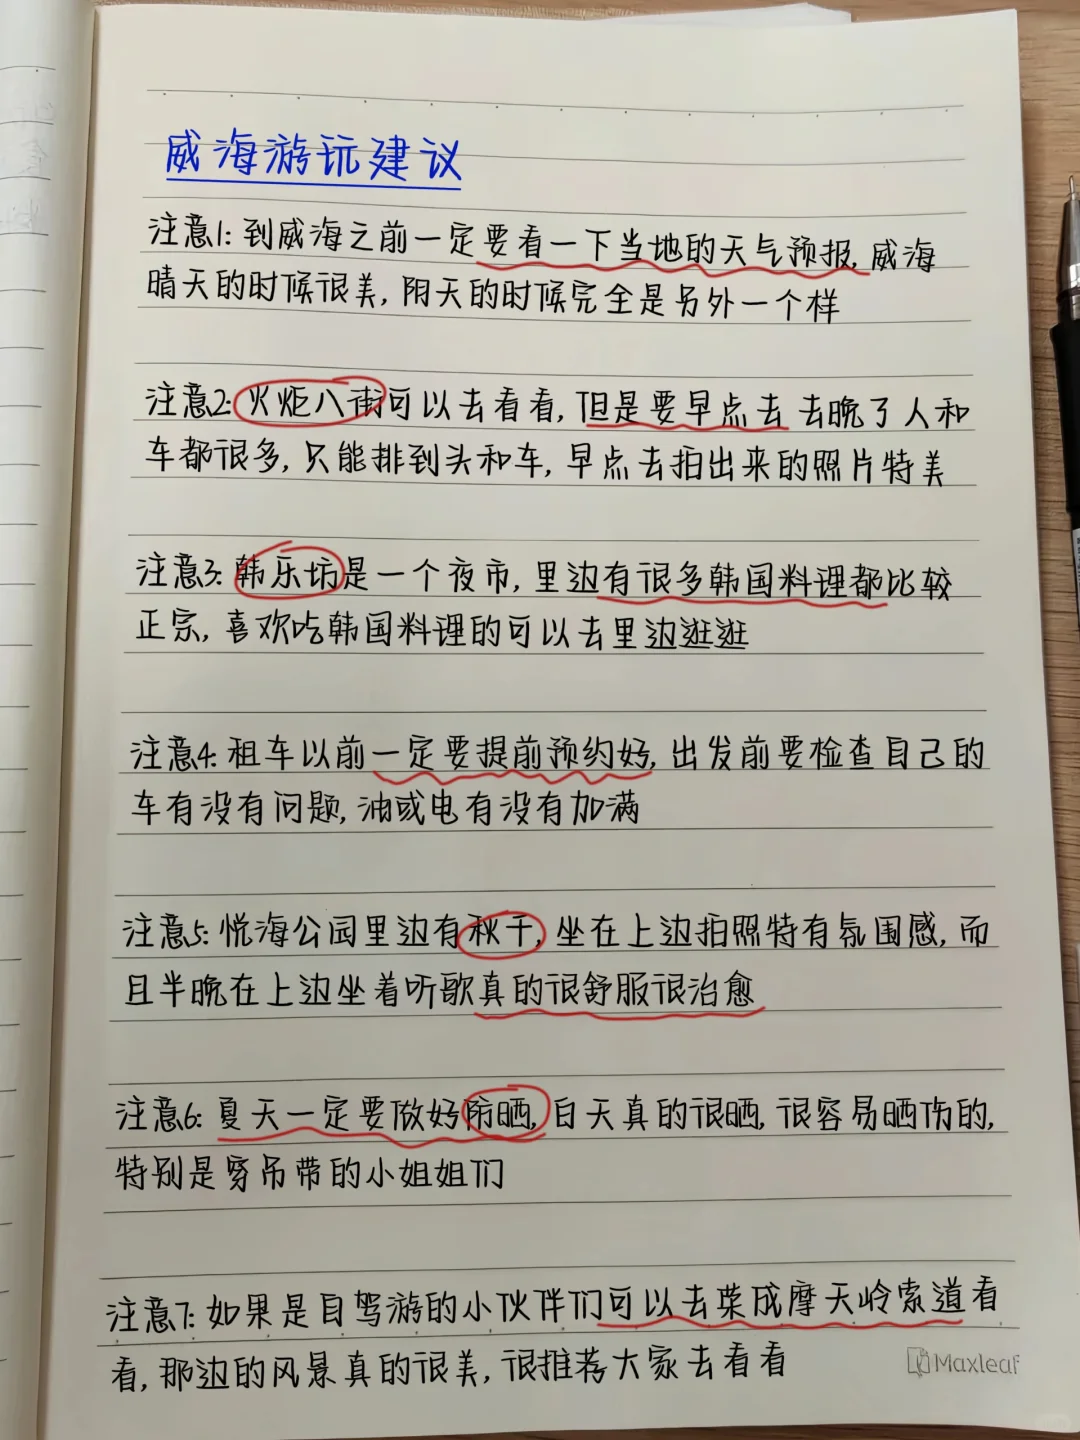 威海游玩建议
注意1: 到威海之前一定要看一下当地的天气预报, 威海
晴天的时候很美, 阴天的时候完全是另外一个样
注意2: 火炬八街可以去看看, 但是要早点去 去晚了人和
车都很多, 只能排到头和车, 早点去拍出来的照片特美
注意3: 韩乐坊是一个夜市, 里边有很多韩国料理都比较
正宗, 喜欢吃韩国料理的可以去里边逛逛
注意4: 租车以前一定要提前预约好, 出发前要检查自己的
车有没有问题, 油或电有没有加满
注意5: 悦海公园里边有秋千, 坐在上边拍照特有氛围感, 而
且半晚在上边坐着听歌真的很舒服很治愈
注意6: 夏天一定要做好防晒, 白天真的很晒, 很容易晒伤的,
特别是穿吊带的小姐姐们
注意7: 如果是自驾游的小伙伴们可以去荣成摩天岭索道看
看, 那边的风景真的很美, 很推荐大家去看看
Maxleaf